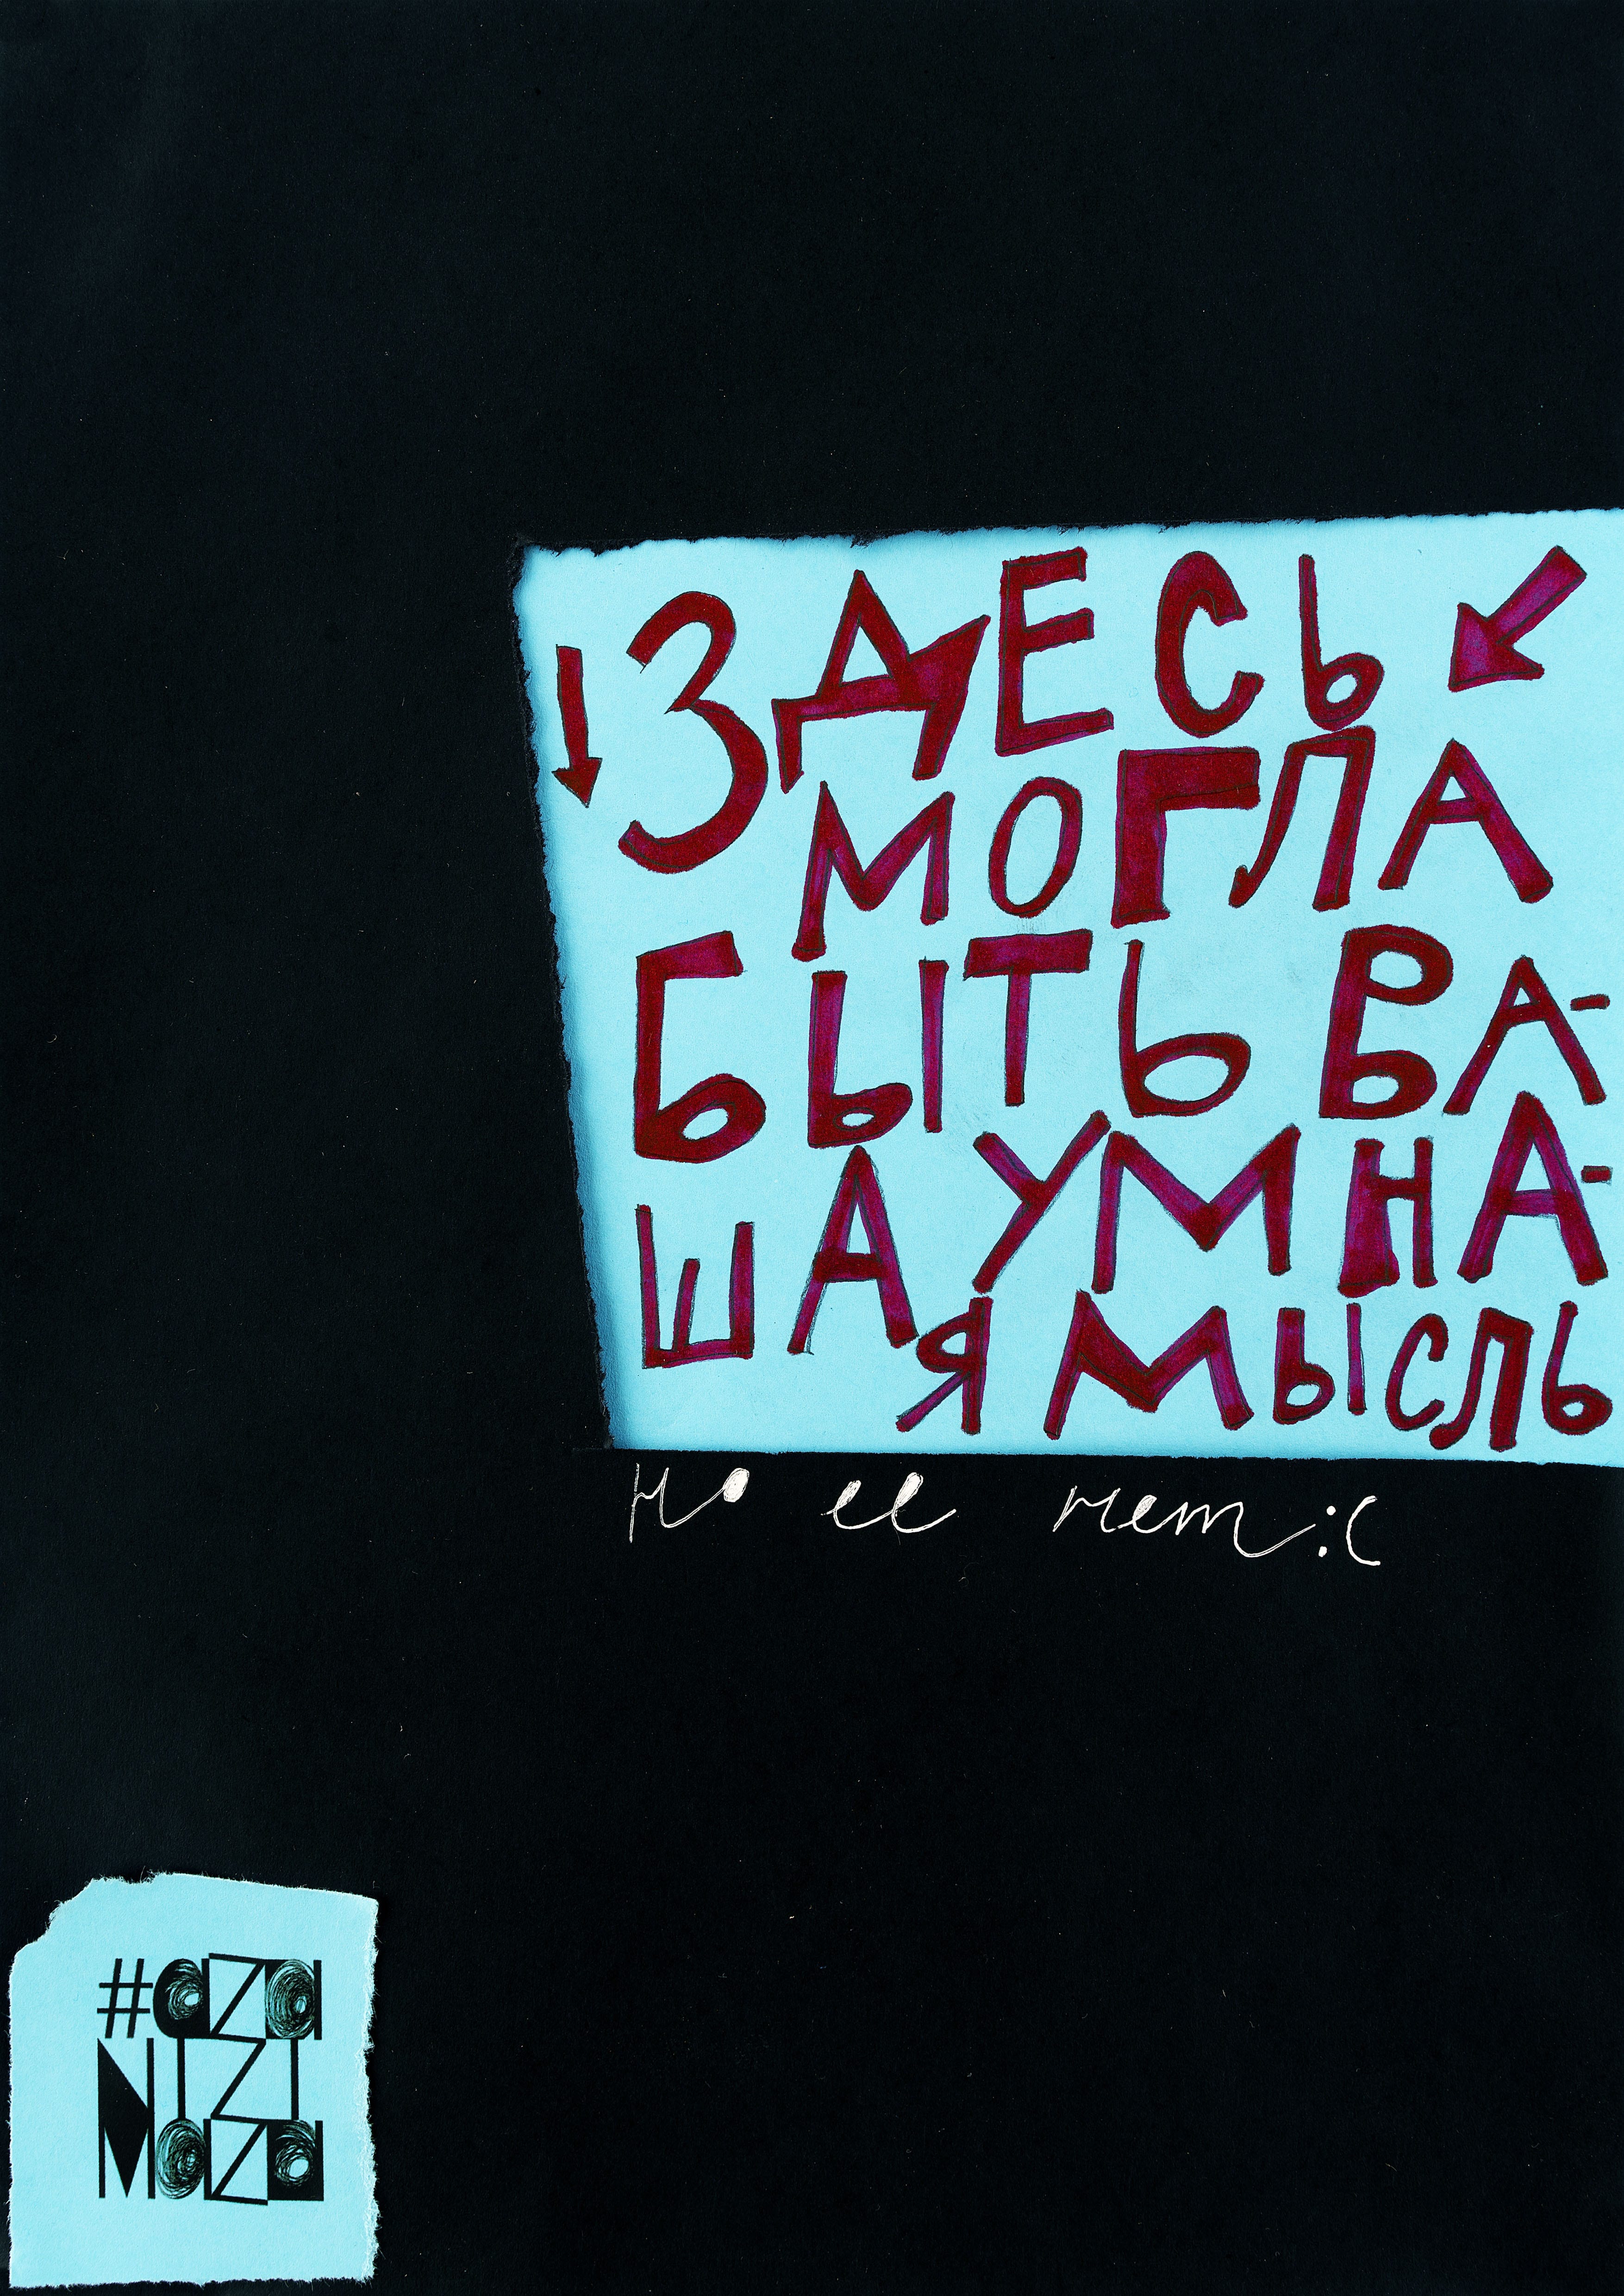 ЗДЕСЬ
МОГЛА
БЫТЬ ВА-
ША УМНА-
Я МЫСЛЬ
но ее нет :(
#aza
NIZI
Maza